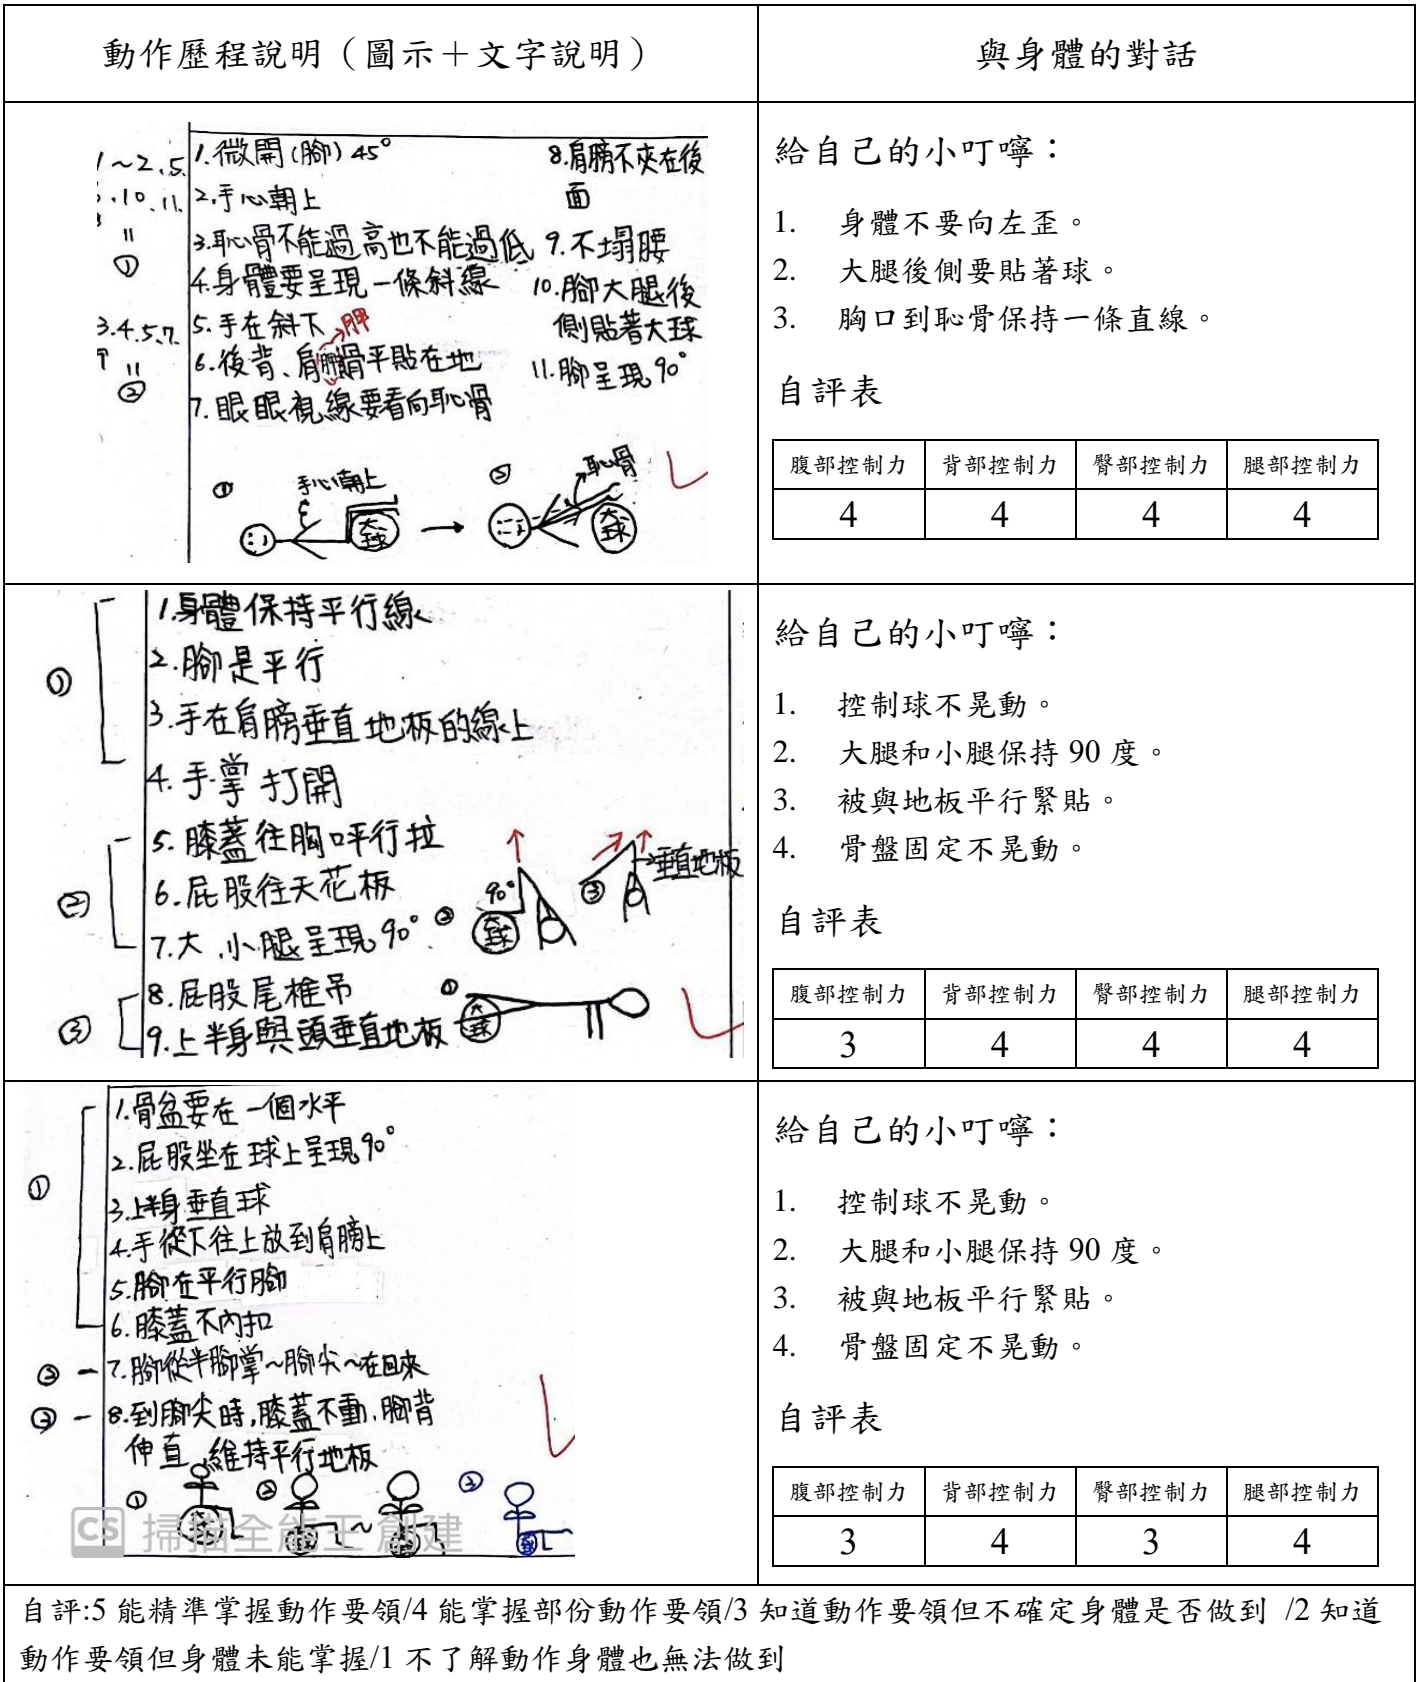 動作歷程說明（圖示＋文字說明）
與身體的對話
1～2.5.
.10.11.
=
①
3.4.5.7.
=
②
1.微開(腳)45°
2.手心朝上
3.恥骨不能過高也不能過低
4.身體要呈現一條斜線
5.手在斜下
胛
6.後背、肩胛骨平貼在地
7.眼眼視線要看向恥骨
8.肩膀不夾在後
面
9.不塌腰
10.腳大腿後
側貼著大球
11.腳呈現90°
① 手心朝上
大球
② 恥骨
大球
給自己的小叮嚀：
1. 身體不要向左歪。
2. 大腿後側要貼著球。
3. 胸口到恥骨保持一條直線。
自評表
腹部控制力 背部控制力 臀部控制力 腿部控制力
4 4 4 4
①
1.身體保持平行線
2.腳是平行
3.手在肩膀垂直地板的線上
4.手掌打開
②
5.膝蓋往胸口平行拉
6.屁股往天花板
7.大、小腿呈現90°
③
8.屁股尾椎吊
9.上半身與頭垂直地板
② 90° 大球
③ 垂直地板
① 大球
給自己的小叮嚀：
1. 控制球不晃動。
2. 大腿和小腿保持 90 度。
3. 被與地板平行緊貼。
4. 骨盤固定不晃動。
自評表
腹部控制力 背部控制力 臀部控制力 腿部控制力
3 4 4 4
①
1.骨盆要在一個水平
2.屁股坐在球上呈現90°
3.上半身垂直球
4.手從下往上放到肩膀上
5.腳在平行腳
6.膝蓋不內扣
② － 7.腳從半腳掌～腳尖～在回來
③ － 8.到腳尖時,膝蓋不動、腳背
伸直、維持平行地板
① ② ～ ③
CS 掃描全能王 創建
給自己的小叮嚀：
1. 控制球不晃動。
2. 大腿和小腿保持 90 度。
3. 被與地板平行緊貼。
4. 骨盤固定不晃動。
自評表
腹部控制力 背部控制力 臀部控制力 腿部控制力
3 4 3 4
自評:5 能精準掌握動作要領/4 能掌握部份動作要領/3 知道動作要領但不確定身體是否做到 /2 知道
動作要領但身體未能掌握/1 不了解動作身體也無法做到